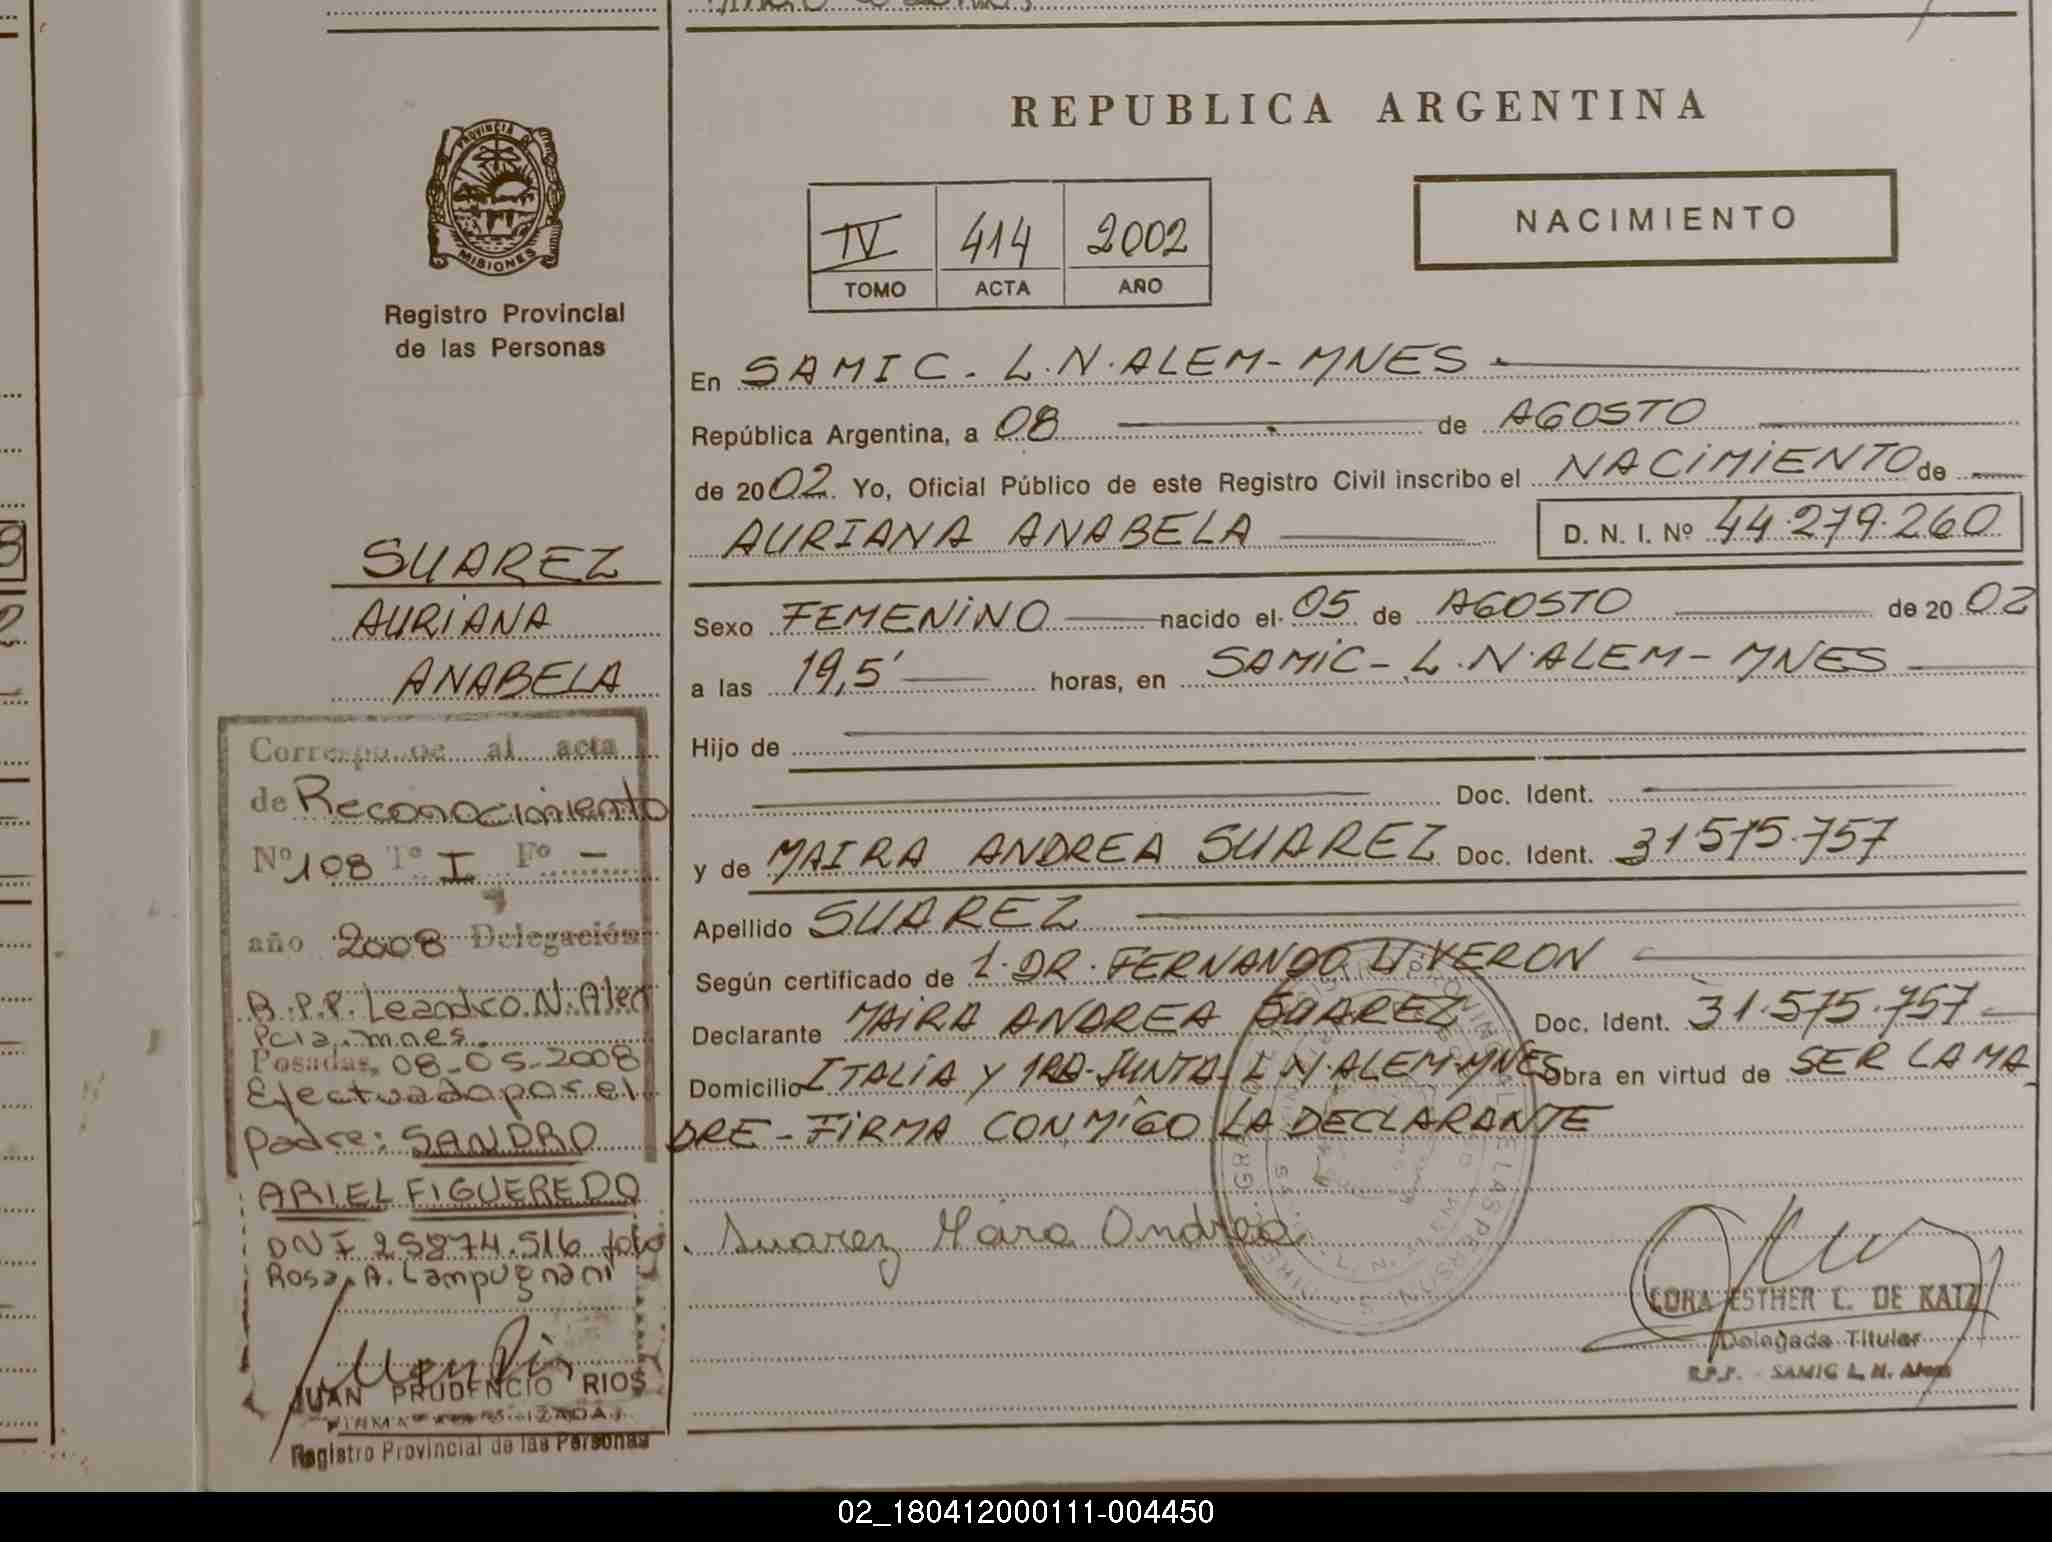 REPUBLICA ARGENTINA
PROVINCIA DE
MISIONES
Registro Provincial
de las Personas
IV 414 2002
TOMO ACTA AÑO
NACIMIENTO
En SAMIC. L.N.ALEM-MNES
República Argentina, a 08 de AGOSTO
de 2002. Yo, Oficial Público de este Registro Civil inscribo el NACIMIENTO de
AURIANA ANABELA D. N. I. Nº 44.279.260
Sexo FEMENINO nacido el 05 de AGOSTO de 2002
a las 19,5' horas, en SAMIC-L.N.ALEM-MNES
Hijo de
Doc. Ident.
y de MAIRA ANDREA SUAREZ Doc. Ident. 31.575.757
Apellido SUAREZ
Según certificado de 1.DR.FERNANDO VERON
Declarante MAIRA ANDREA SUAREZ Doc. Ident. 31.575.757
Domicilio ITALIA Y 1RA-JUNTA-L.N.ALEM-MNES Obra en virtud de SER LA MA
DRE-FIRMA CONMIGO LA DECLARANTE
Suarez Maira Andrea
CORA ESTHER L. DE KATZ
Delegada Titular
R.P.P. - SAMIC L. N. Alem
SUAREZ
AURIANA
ANABELA
Corresponde al acta
de Reconocimiento
Nº 108 Tº I Fº -
año 2008 Delegación
R.P.P. Leandro.N.Alem
Pcia.mnes.
Posadas, 08-05-2008
Efectuada por el
padre: SANDRO
ARIEL FIGUEREDO
DNI 25874.516
Rosa A. Lampugnani
JUAN PRUDENCIO RIOS
Registro Provincial de las Personas
02_180412000111-004450